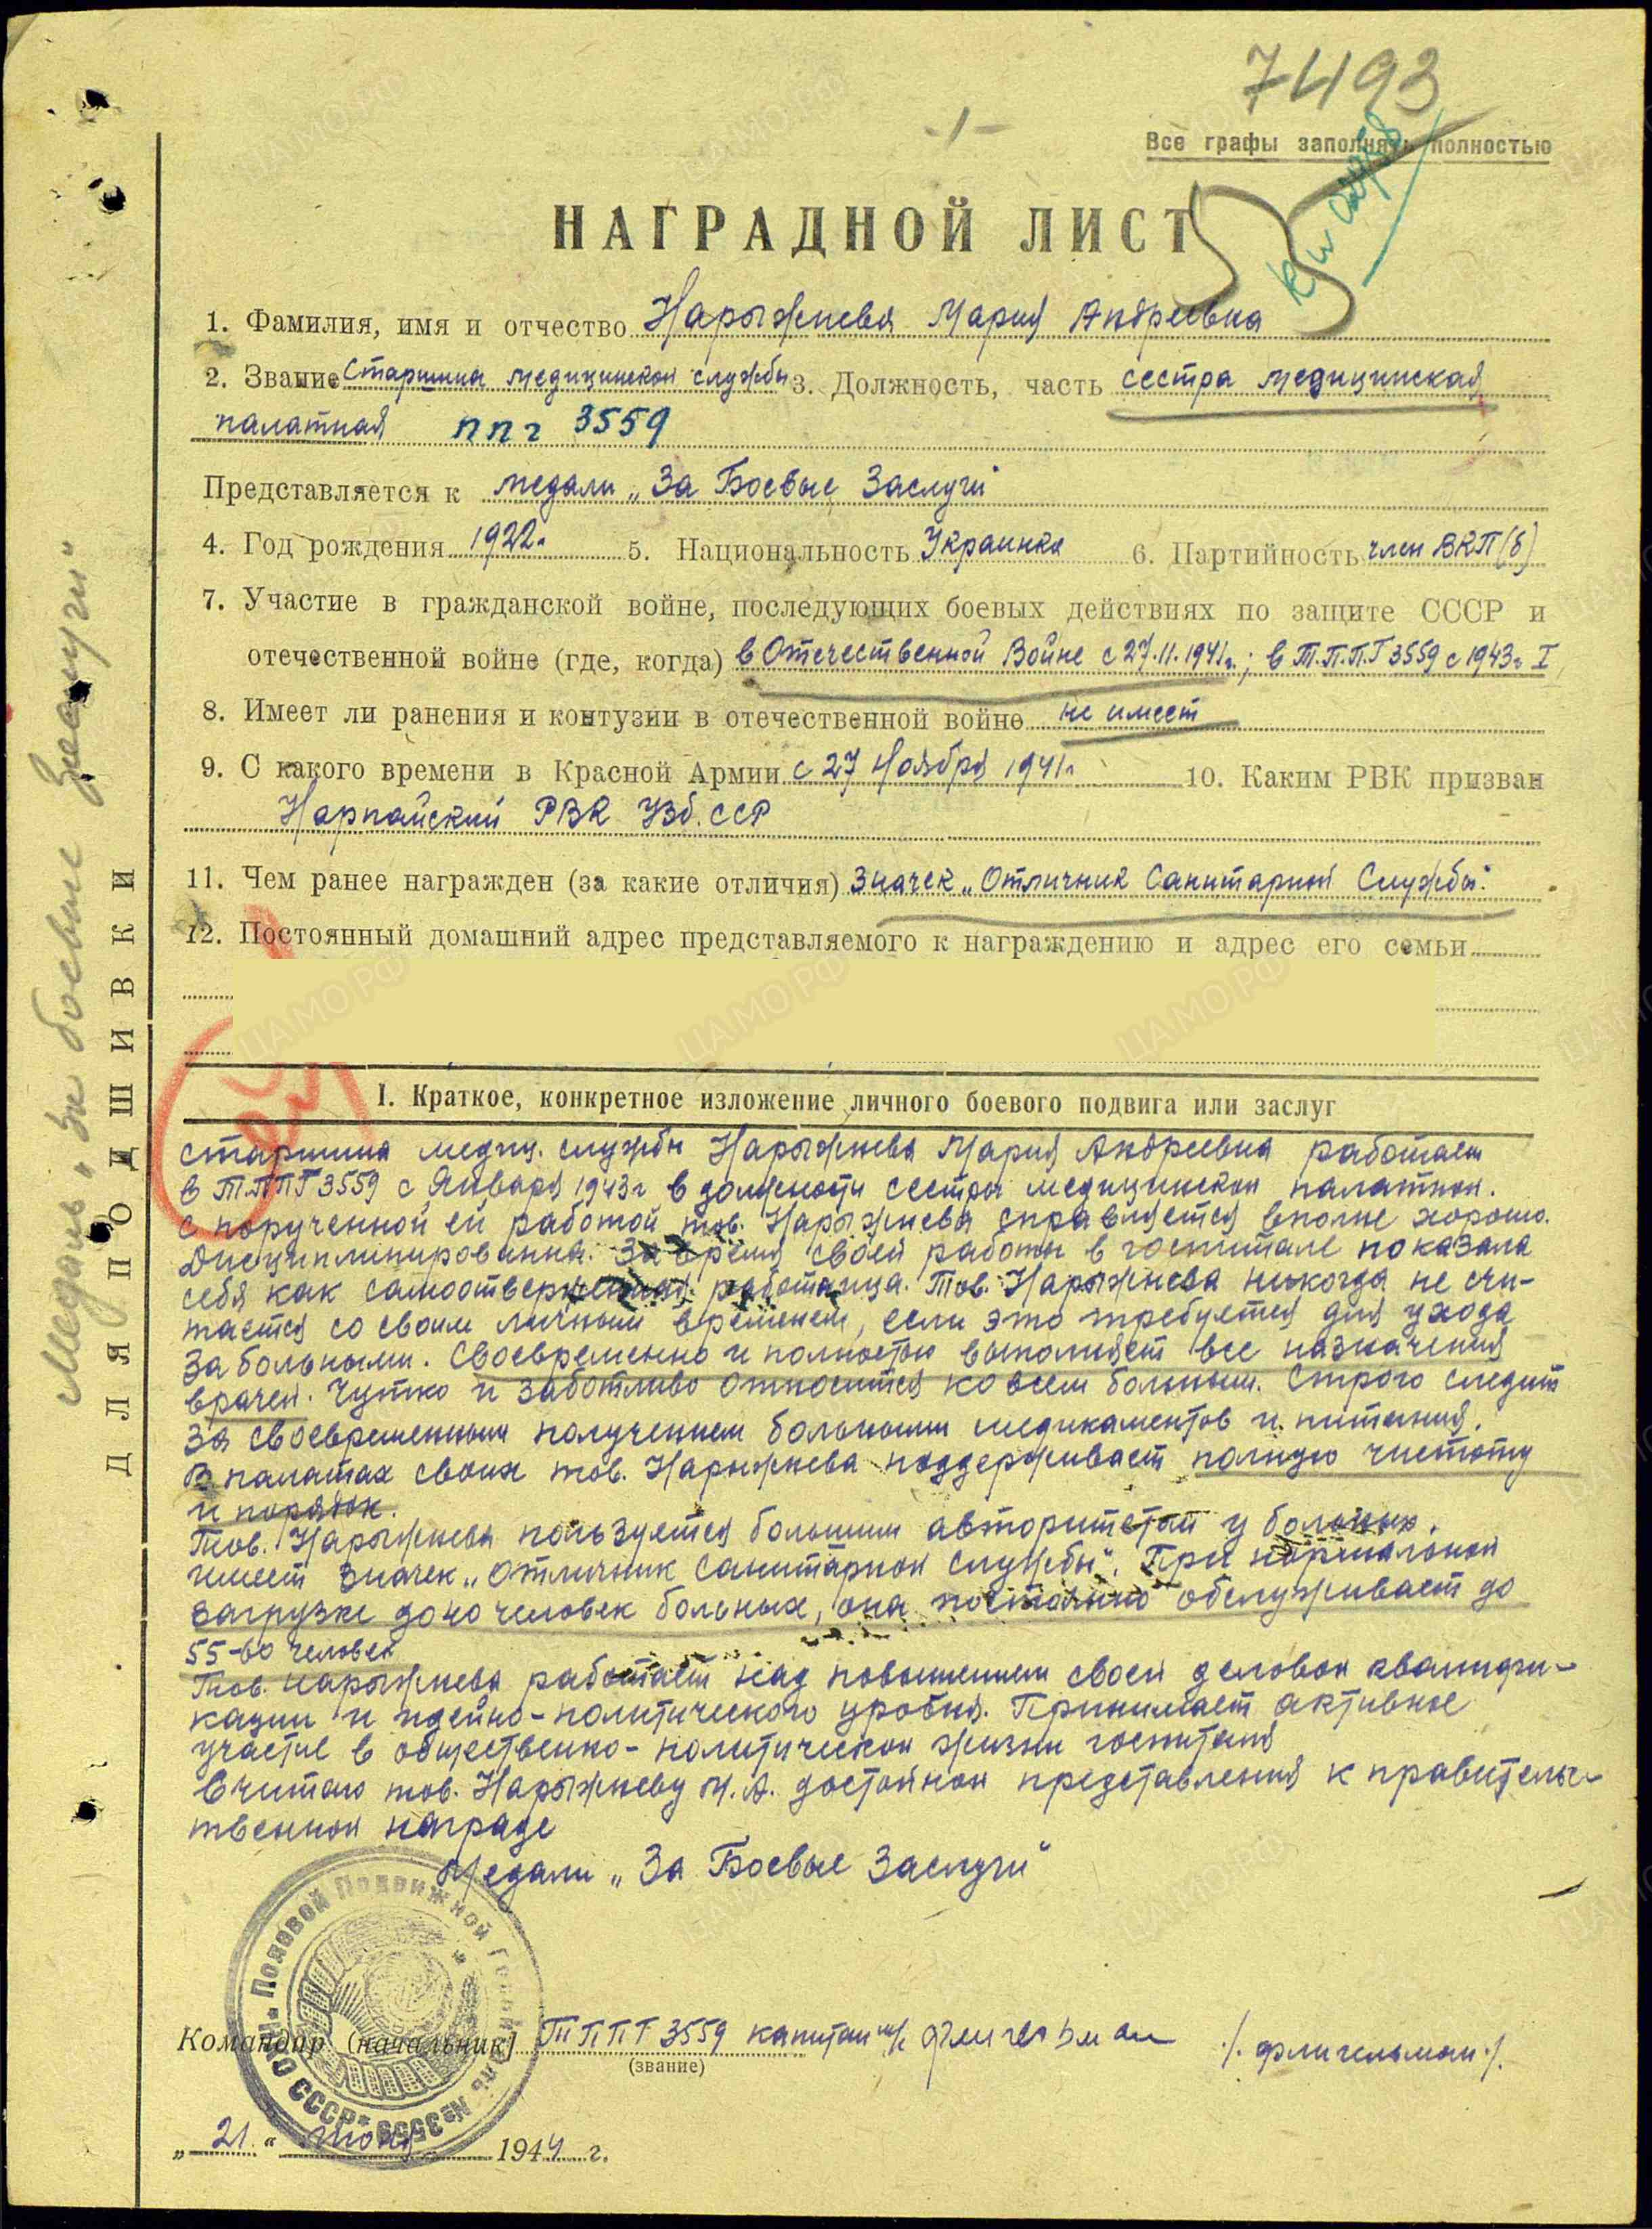 7493
-1-
Все графы заполнять полностью
НАГРАДНОЙ ЛИСТ
1. Фамилия, имя и отчество Нарыжнева Мария Андреевна
2. Звание Старшина медицинской службы 3. Должность, часть сестра медицинская
палатная ппг 3559
Представляется к медали „За Боевые Заслуги"
4. Год рождения 1922г. 5. Национальность Украинка 6. Партийность член ВКП(б)
7. Участие в гражданской войне, последующих боевых действиях по защите СССР и
отечественной войне (где, когда) в Отечественной Войне с 27.11.1941г.; в Т.П.П.Г 3559 с 1943г I
8. Имеет ли ранения и контузии в отечественной войне не имеет
9. С какого времени в Красной Армии с 27 Ноября 1941г 10. Каким РВК призван
Нарпайский РВК Узб. ССР
11. Чем ранее награжден (за какие отличия) Значек „Отличник Санитарной Службы".
12. Постоянный домашний адрес представляемого к награждению и адрес его семьи
I. Краткое, конкретное изложение личного боевого подвига или заслуг
старшина медиц. службы Нарыжнева Мария Андреевна работает
в Т.ППГ 3559 с Января 1943г в должности сестры медицинской палатной.
С порученной ей работой тов. Нарыжнева справляется вполне хорошо.
Дисциплинированна. За время своей работы в госпитале показала
себя как самоотверженная работница. Тов. Нарыжнева никогда не счи-
тается со своим личным временем, если это требуется для ухода
За больными. Своевременно и полностью выполняет все назначения
врачей. Чутко и заботливо относится ко всем больным. Строго следит
За своевременным получением больными медикаментов и питания.
В палатах своих тов. Нарыжнева поддерживает полную чистоту
и порядок.
Тов. Нарыжнева пользуется большим авторитетом у больных.
имеет Значек „Отличник Санитарной Службы". При нормальной
загрузке до 40 человек больных, она постоянно обслуживает до
55-60 человек
Тов. Нарыжнева работает над повышением своей деловой квалифи-
кации и идейно-политического уровня. Принимает активное
участие в общественно-политической жизни госпиталя
Считаю тов. Нарыжневу М.А. достойной представления к правительс-
твенной награде
Медали „За Боевые Заслуги"
Полевой Подвижной Госпиталь №3559 * НКО СССР *
Командир (начальник) ТППГ 3559 капитан м/с Флигельман /. Флигельман ./.
(звание)
„21" Июня 1944 г.
ДЛЯ ПОДШИВКИ
Медаль „За боевые Заслуги"
ЦАМО РФ